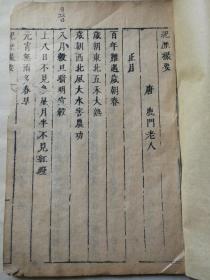 祝歷撮要
唐　鹿門老人
正月
百年難遇歲朝春
歲朝東北五禾大熟
歲朝西北風大水害農功
入月穀旦看明宵穀
上八日不見參星月半不見紅燈
元宵無雨多春旱